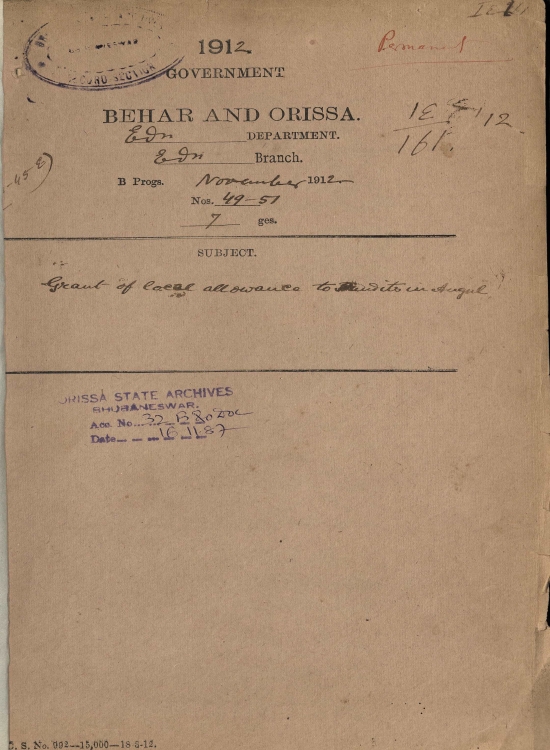 Permanent
1912
GOVERNMENT
BEHAR AND ORISSA.
Edn DEPARTMENT.
Edn Branch.
B Progs. November 1912
Nos. 49-51
7 ges.
IE 12
161
SUBJECT.
Grant of local allowance to Pundits in Angul
ORISSA STATE ARCHIVES
BHUBANESWAR.
Acc. No. 32 B&O DOC
Date 16.11.87
S. No. 992—15,000—18-6-12.
RECORD SECTION